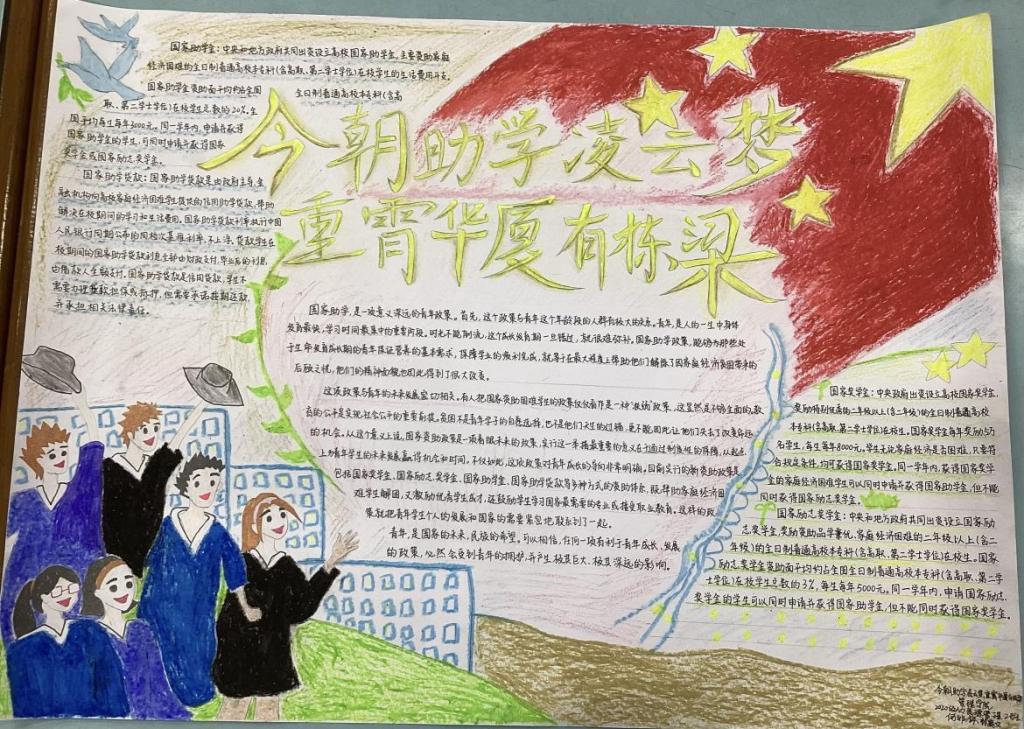 今朝助学凌云梦
重霄华厦有栋梁
国家助学金：中央和地方政府共同出资设立高校国家助学金，主要资助家庭
经济困难的全日制普通高校本专科(含高职、第二学士学位)在校学生的生活费用开支。
国家助学金资助面平均约占全国
全日制普通高校本专科(含高
职、第二学士学位)在校学生总数的20%，生
国平均每生每年3000元。同一学年内，申请并获得
国家助学金的学生，可同时申请并获得国家
奖学金或国家励志奖学金。
国家助学贷款：国家助学贷款是由政府主导，金
融机构向高校家庭经济困难学生提供的信用助学贷款，帮助
解决在校期间的学习和生活费用。国家助学贷款利率执行中国
人民银行同期公布的同档次基准利率，不上浮。贷款学生在
校期间的国家助学贷款利息全部由财政支付，毕业后的利息
由借款人全额支付。国家助学贷款是信用贷款，学生不
需要办理贷款担保或抵押，但需要承诺按期还款，
并承担相关法律责任。
国家助学，是一项意义深远的青年政策。首先，这个政策与青年这个年龄段的人群有极大的关系。青年，是人的一生中身体
发育最快，学习时间最集中的重要阶段。时光不能倒流，这个成长发育期一旦错过，就很难弥补。国家助学政策，能够为那些处
于生命发育成长期的青年保证营养的基本需求，保障学业的顺利完成，就等于在最大程度上帮助他们解除了因家庭经济贫困带来的
后顾之忧，他们的精神面貌也因此得到了很大改变。
这项政策与青年的未来发展密切相关。有人把国家资助困难学生的政策仅仅看作是一种
政策，这显然是不够全面的。教
育的公平是实现社会公平的重要前提。贫困不是青年学子的自愿选择，也不是他们天生的过错，更不能因此让他们失去了改变命运
的机会。从这个意义上说，国家资助政策是一项着眼未来的政策，实行这一举措最重要的意义在于通过制度性的保障，从起点
上为青年学生的未来发展赢得机会和时间。不仅如此，这项政策对青年成长的导向非常明确。目前实行的新资助政策是
包括国家奖学金、国家励志奖学金、国家助学金、国家助学贷款等多种方式的资助体系，既帮助家庭经济困
难学生解困，又激励优秀学生成才，还鼓励学生学习国家最需要的专业或接受职业教育。这样的政
策就把青年学生个人的发展和国家的需要紧密地联系到了一起。
青年，是国家的未来，民族的希望。可以相信，任何一项有利于青年成长、发展
的政策，必然会受到青年的拥护，并产生极其巨大、极其深远的影响。
国家奖学金：中央政府出资设立高校国家奖学金，
奖励特别优秀的二年级以上(含二年级)的全日制普通高校
本专科(含高职、第二学士学位)在校生。国家奖学金每年奖励5万
名学生，每生每年8000元。学生无论家庭经济是否困难，只要符
合规定条件，均可获得国家奖学金。同一学年内，获得国家奖学
金的家庭经济困难学生可以同时申请并获得国家助学金，但不能
同时获得国家励志奖学金。
国家励志奖学金：中央和地方政府共同出资设立国家励
志奖学金，奖励资助品学兼优、家庭经济困难的二年级以上(含二
年级)的全日制普通高校本专科(含高职、第二学士学位)在校生。国家
励志奖学金资助面平均约占全国全日制普通高校本专科(含高职、第二学
士学位)在校学生总数的3%，每生每年5000元。同一学年内，申请国家励志
奖学金的学生可以同时申请并获得国家助学金，但不能同时获得国家奖学金。
管理学院